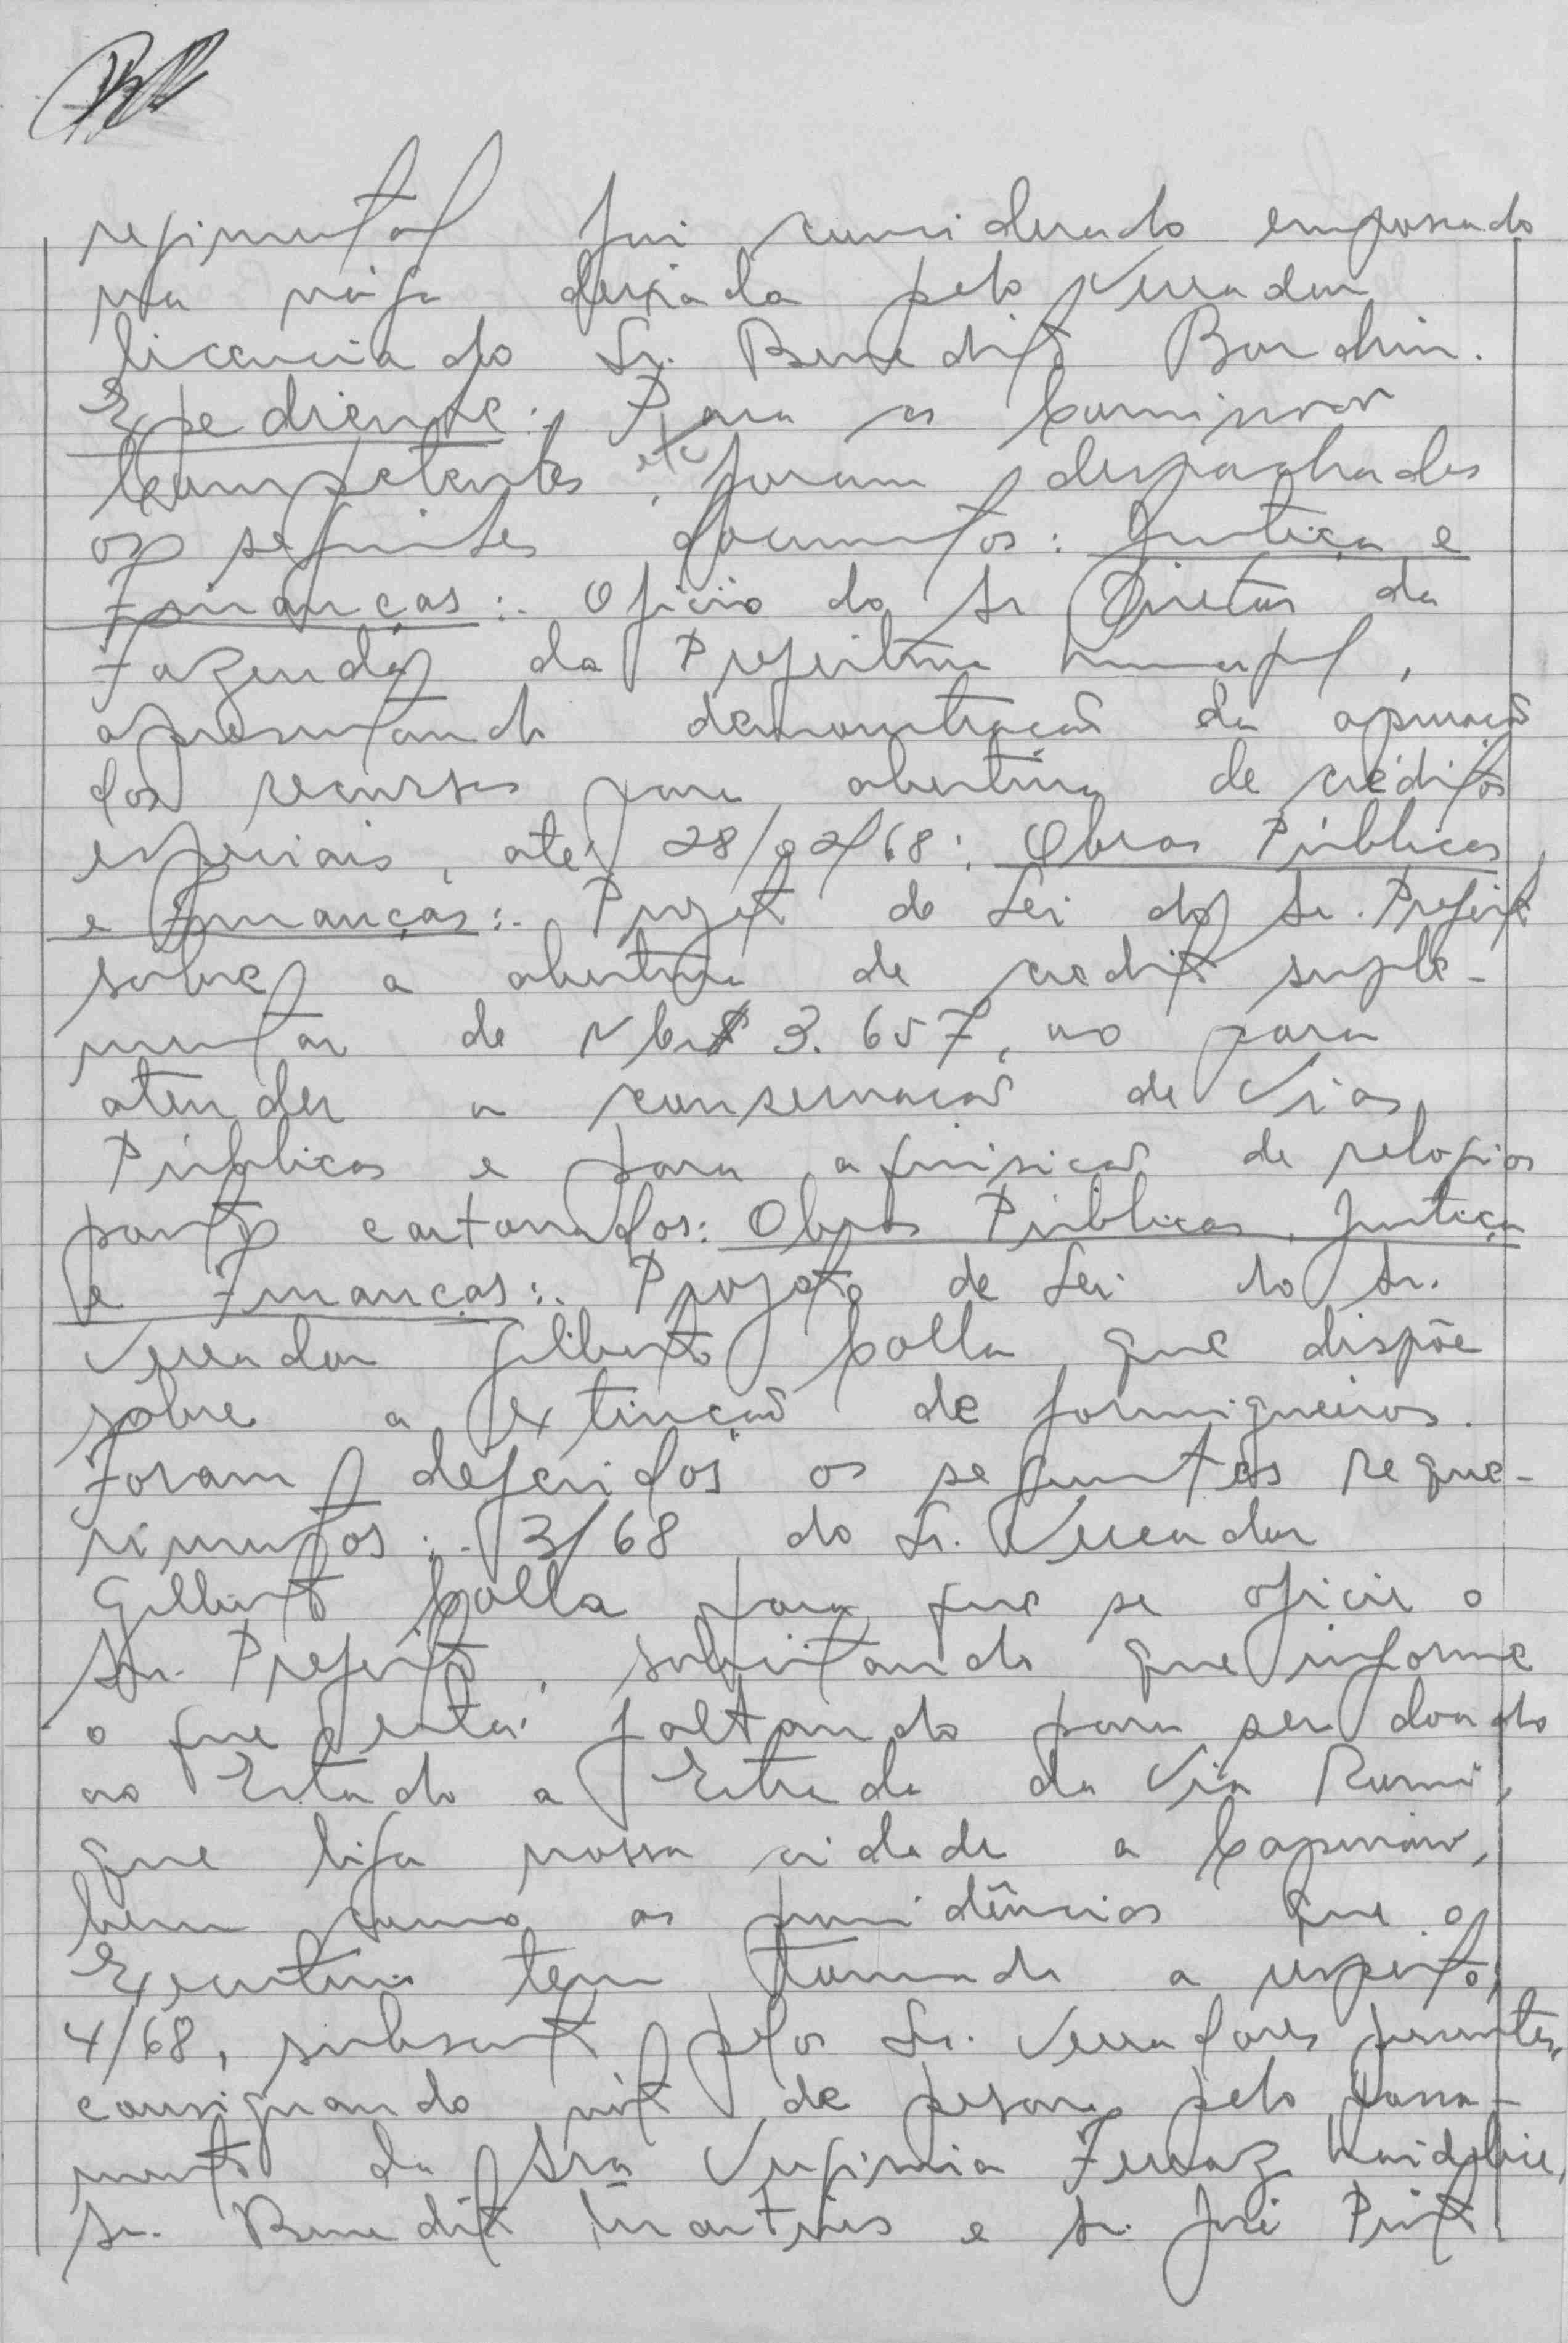 regimental foi considerado empossado
na vaga deixada pelo Vereador
licenciado Sr. Benedito Bordin.
Expediente: Para as Comissões
Competentes etc, foram despachados
os seguintes documentos: Justiça e
Finanças:. Oficio do Sr Diretor da
Fazenda da Prefeitura Municipal,
apresentando demonstração da apuração
dos recursos para abertura de créditos
especiais, até 28/02/68: Obras Públicas
e Finanças:. Projeto de Lei do Sr. Prefeito
sobre a abertura de credito suple-
mentar de NCr$ 3.657,00 para
atender a conservação de Vias
Públicas e para aquisição de relogios
ponto cartonados: Obras Públicas, Justiça
e Finanças:. Projeto de Lei do Sr.
Vereador Gilberto Colla que dispõe
sobre a extinção de formigueiros.
Foram deferidos os seguintes reque-
rimentos:. 3/68 do Sr. Vereador
Gilberto Colla para que se oficie o
Sr. Prefeito, solicitando que informe
o que está faltando para ser doado
ao Estado a Estrada da Via
que liga nossa cidade a Capivari,
bem como as providências que o
Executivo tem tomado a respeito;
4/68, subscrito pelos Sr. Vereadores presentes,
consignando voto de pesar pelo passa-
mento da Sra Virginia Ferraz
Sr. Benedito Martins e Sr. José